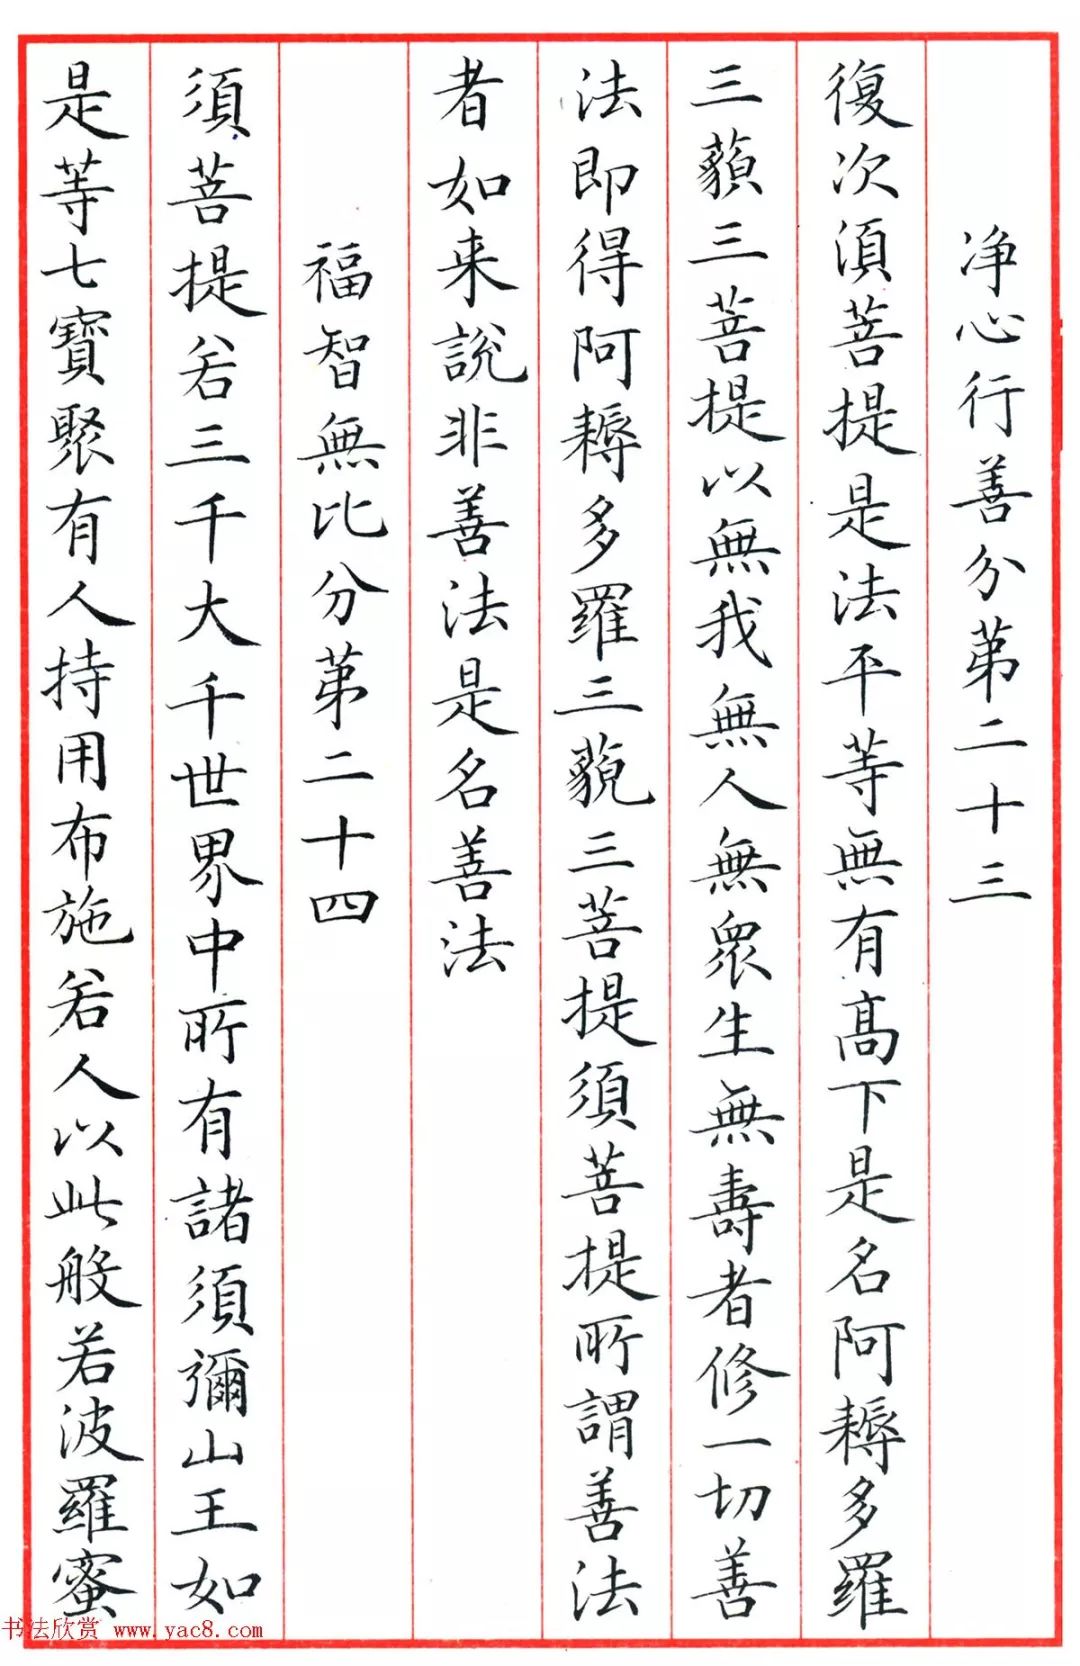 净心行善分第二十三
復次須菩提是法平等無有高下是名阿耨多羅
三藐三菩提以無我無人無眾生無壽者修一切善
法即得阿耨多羅三藐三菩提須菩提所謂善法
者如来說非善法是名善法
福智無比分第二十四
須菩提若三千大千世界中所有諸須彌山王如
是等七寶聚有人持用布施若人以此般若波羅蜜
书法欣赏 www.yac8.com